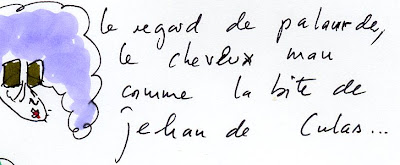 le regard de palourde,
le cheveux mou
comme la bite de
jehan de Culas...